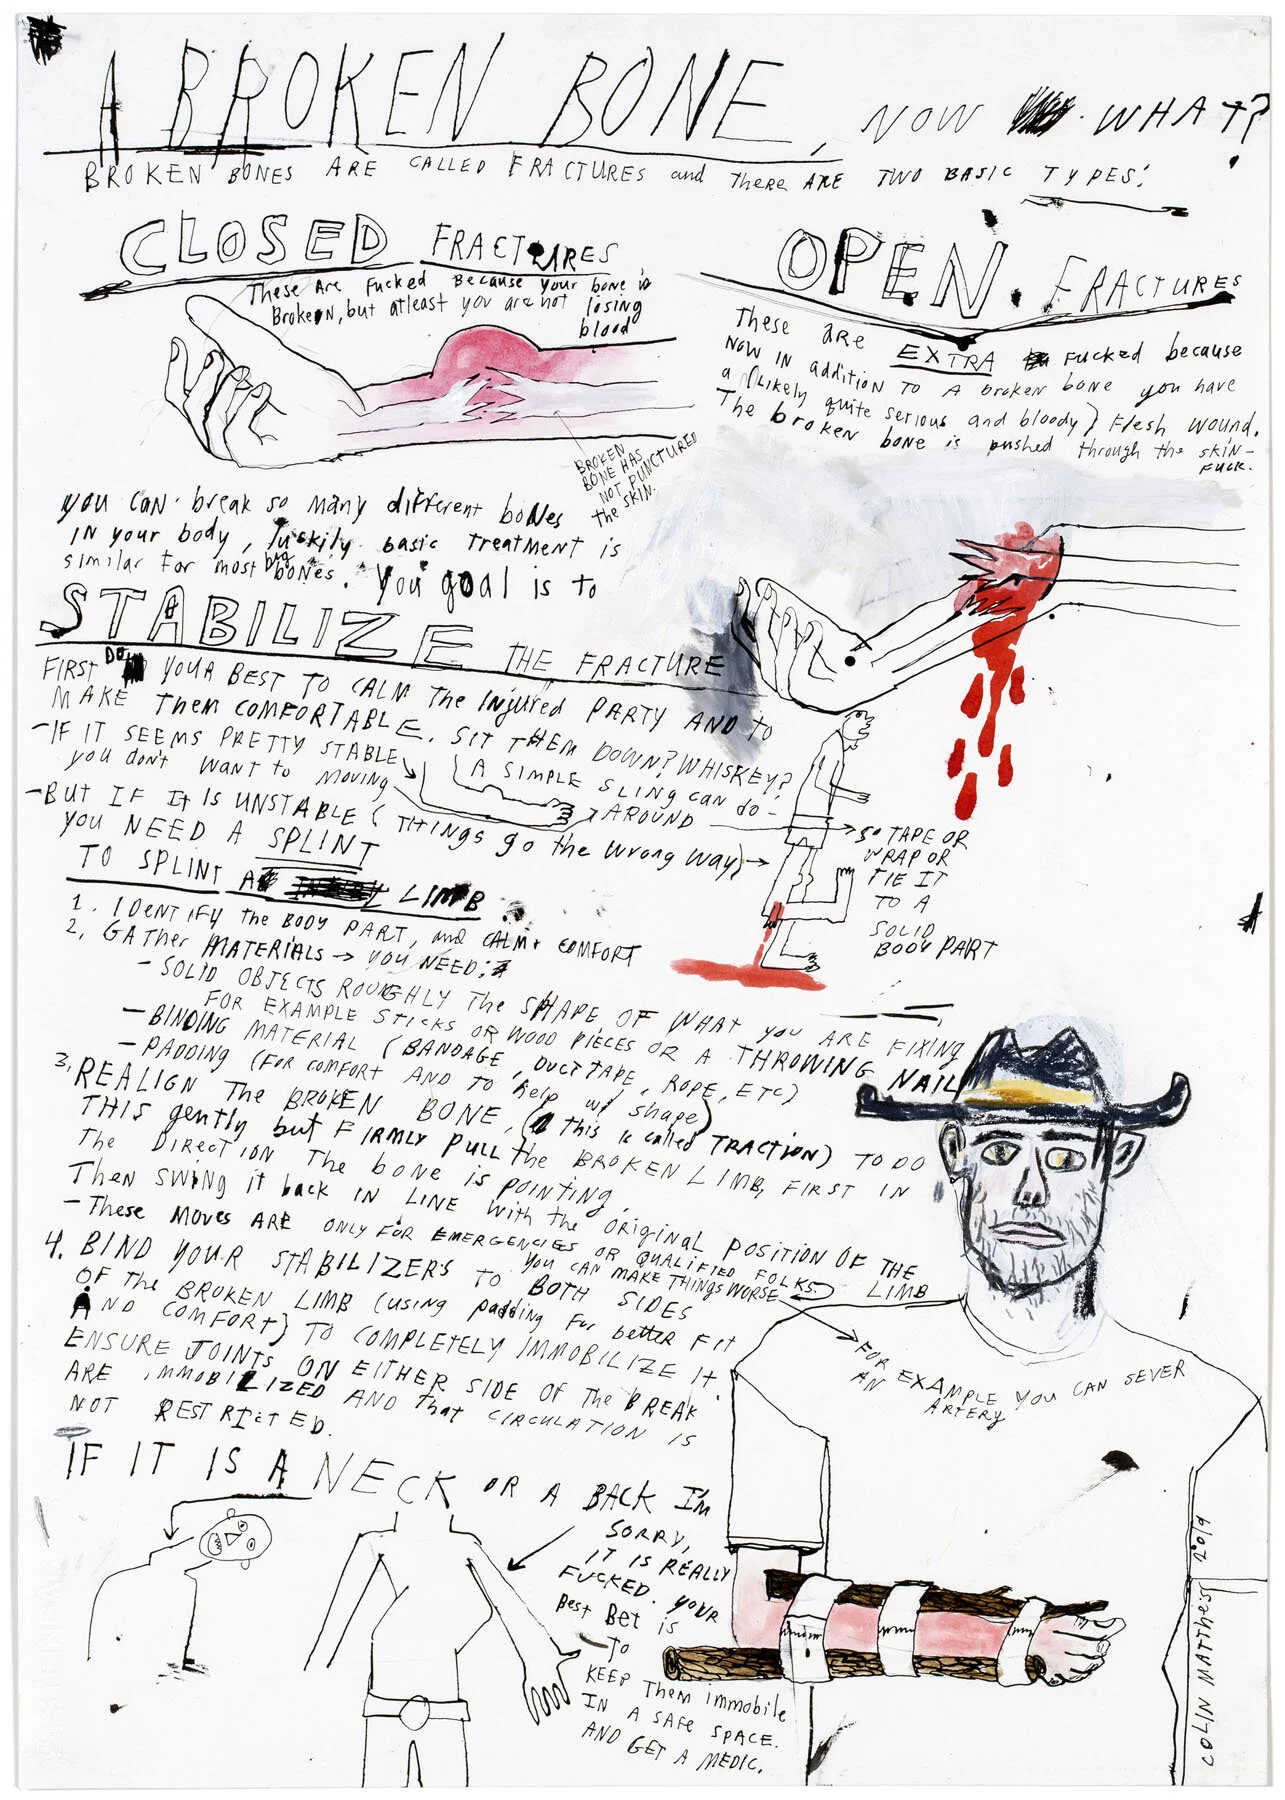 A BROKEN BONE, NOW WHAT?
BROKEN BONES ARE CALLED FRACTURES and There ARE TWO BASIC TYPES:
CLOSED FRACTURES
These Are Fucked Because your bone is
Broken, but atleast you are not losing
blood
BROKEN
BONE HAS
NOT PUNCTURED
the SKIN.
OPEN. FRACTURES
These are EXTRA Fucked because
NOW IN addition TO A broken bone you have
a (likely quite serious and bloody) Flesh wound.
The broken bone is pushed through the skin-
FUCK.
you can break so many different boNes
IN your body, luckily basic treatment is
similar for most big boNes. You goal is to
STABILIZE THE FRACTURE
FIRST DO YOUR BEST TO CALM the Injured PARTY AND to
MAKE Them COMFORTABLE. SIT THEM DOWN? WHISKEY?
-IF IT SEEMS PRETTY STABLE
you don't want to moving
A SIMPLE SLING can do-
AROUND
-BUT IF It IS UNSTABLE (THINGS go the wrong way) →
YOU NEED A SPLINT
SO TAPE OR
WRAP OR
TIE IT
TO A
SOLID
BODY PART
TO SPLINT A LIMB
1. IDENTIFY the BODY PART, and CALM + COMFORT
2. GATher MATERIALS → YOU NEED:
- SOLID OBJECTS ROUGHLY The SHAPE OF WHAT YOU ARE FIXING
FOR EXAMPLE STICKS OR WOOD PIECES OR A THROWING NAIL
- BINDING MATERIAL (BANDAGE, DUCT TAPE, ROPE, ETC)
- PADDING (FOR COMFORT AND TO help w/ shape)
3. REALIGN The BROKEN BONE, (This is called TRACTION) TO DO
THIS gently but FIRMLY PULL the BROKEN LIMB, FIRST IN
The DIRECTION The bone is pointing,
Then SWING it back IN LINE with the original POSITION OF THE
LIMB
- These MOVES ARE ONLY FOR EMERGENCIES OR QUALIFIED FOLKS.
YOU CAN MAKE THINGS WORSE
FOR
AN EXAMPLE YOU CAN SEVER
ARTERY
4. BIND YOUR STABILIZERS TO BOTH SIDES
OF The BROKEN LIMB (using padding for better Fit
AND COMFORT) TO COMPLETELY IMMOBILIZE It.
ENSURE JOINTS ON EITHER SIDE OF the BREAK
ARE IMMOBILIZED AND That CIRCULATION IS
NOT RESTRICTED.
IF IT IS A NECK OR A BACK I'M
SORRY,
IT IS REALLY
FUCKED. YOUR
Best Bet is
To
KEEP Them immobile
IN A SAFE SPACE.
AND GET A MEDIC.
COLIN MATTHES 2019